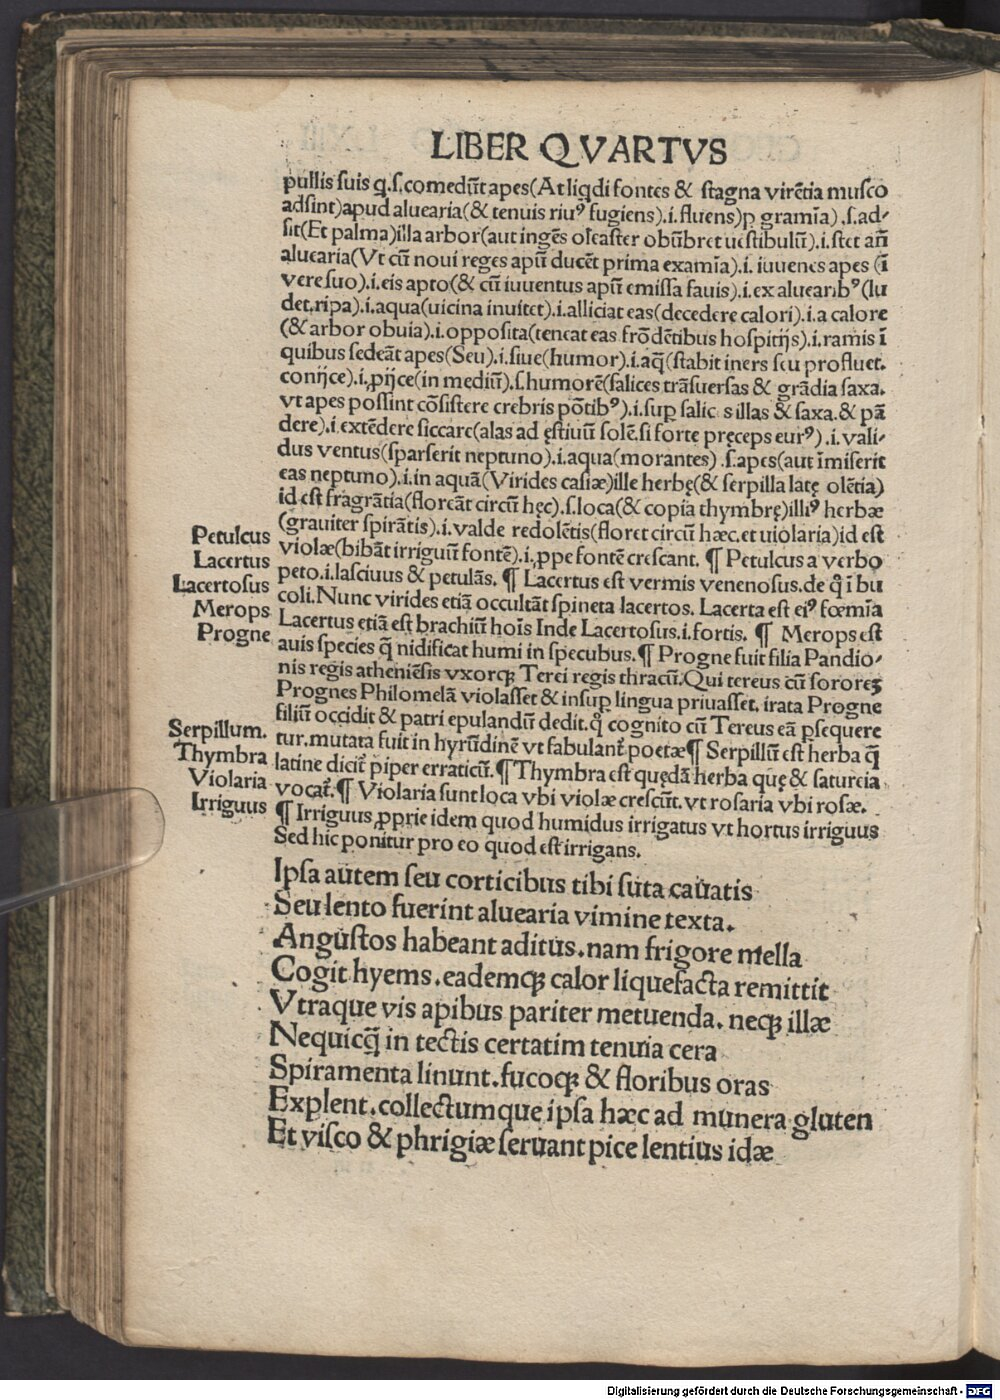 LIBER QVARTVS
pullis suis q.s.comedūt apes(At liqdi fontes & stagna virētia musco
adsint)apud aluearia(& tenuis riuꝰ fugiens).i.fluens)p gramīa).s.ad-
sit(Et palma)illa arbor(aut ingēs oleaster obūbret uestibulū).i.stet añ
aluearia(Vt cū noui reges apū ducēt prima examīa).i. iuuenes apes (ī
vere suo).i.eis apto(& cū iuuentus apū emissa fauis).i.ex aluearibꝰ(lu
det.ripa).i.aqua(uicina inuitet).i.alliciat eas(decedere calori).i.a calore
(& arbor obuia).i.opposita(teneat eas frōdētibus hospitijs).i.ramis ī
quibus sedeāt apes(Seu).i.siue(humor).i.aq̄(stabit iners seu profluet.
conijce).i.ꝓijce(in mediū).s.humorē(salices trāsuersas & grādia saxa.
vt apes possint cōsistere crebris pōtibꝰ).i.suꝑ salic s illas & saxa.& pā
dere).i.extēdere siccare(alas ad ęstiuū solē.si forte pręceps eurꝰ).i.vali-
dus ventus(sparserit neptuno).i.aqua(morantes).s.apes(aut īmiserit
eas neptuno).i.in aquā(Virides casiæ)ille herbę(& serpilla latę olētia)
id est fragrātia(floreāt circū hęc).s.loca(& copia thymbrę)illiꝰ herbæ
(grauiter spirātis).i.valde redolētis(floret circū hæc.et uiolaria)id est
violæ(bibāt irriguū fontē).i.ꝓpe fontē crescant. ¶ Petulcus a verbo
peto.i.lasciuus & petulās. ¶ Lacertus est vermis venenosus.de q̄ ī bu
coli.Nunc virides etiā occultāt spineta lacertos. Lacerta est eiꝰ fœmīa
Lacertus etiā est brachiū hoīs Inde Lacertosus.i.fortis. ¶ Merops est
auis species q̄ nidificat humi in specubus.¶ Progne fuit filia Pandio-
nis regis atheniēsis vxorqꝫ Terei regis thracū.Qui tereus cū sororeꝫ
Prognes Philomelā violasset & insuꝑ lingua priuasset, irata Progne
filiū occidit & patri epulandū dedit.q̄ cognito cū Tereus eā ꝑsequere
tur.mutata fuit in hyrūdinē vt fabulant̄ poetæ¶ Serpillū est herba q̄
latine dicit̄ piper erraticū.¶ Thymbra est quędā herba quę & satureia
vocat̄.¶ Violaria sunt loca vbi violæ crescūt. vt rosaria vbi rosæ.
¶ Irriguus ꝓprie idem quod humidus irrigatus vt hortus irriguus
Sed hic ponitur pro eo quod est irrigans.
Petulcus
Lacertus
Lacertosus
Merops
Progne
Serpillum.
Thymbra
Violaria
Irriguus
Ipsa autem seu corticibus tibi suta cauatis
Seu lento fuerint aluearia vimine texta.
Angustos habeant aditus.nam frigore mella
Cogit hyems.eademqꝫ calor liquefacta remittit
Vtraque vis apibus pariter metuenda. neqꝫ illæ
Nequicq̄ in tectis certatim tenuia cera
Spiramenta linunt.fucoqꝫ & floribus oras
Explent.collectumque ipsa hæc ad munera gluten
Et visco & phrigiæ seruant pice lentius idæ
Digitalisierung gefördert durch die Deutsche Forschungsgemeinschaft - DFG